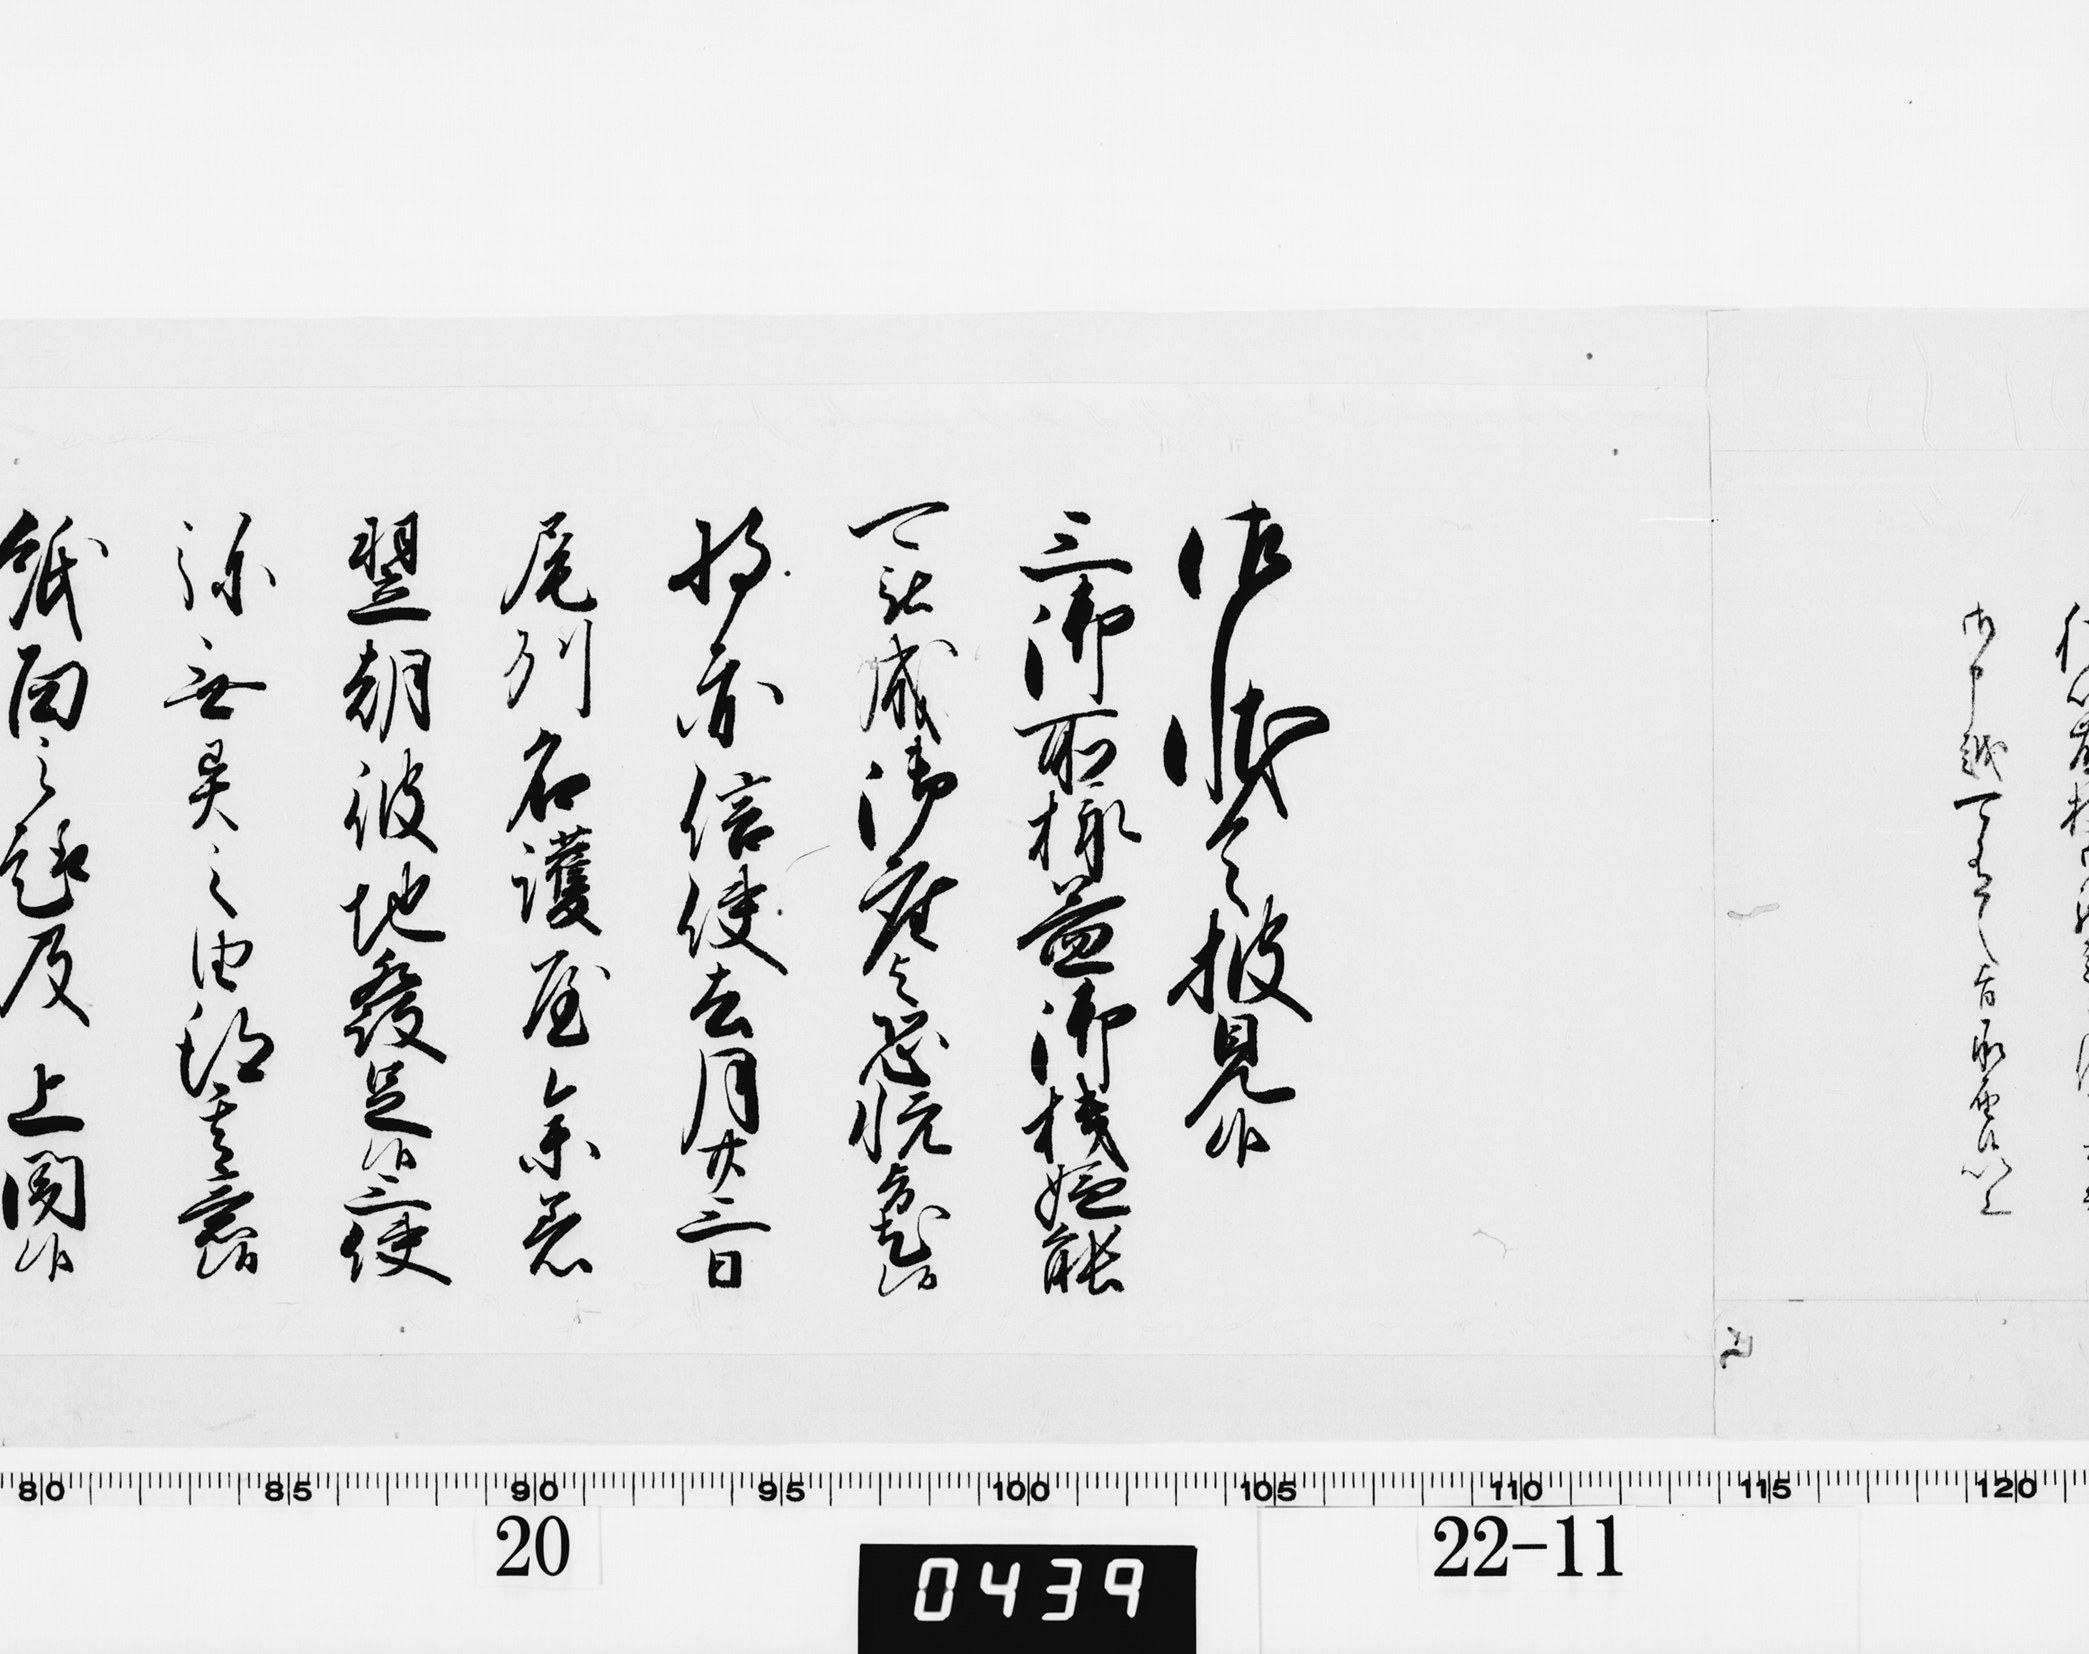 御状令披見候
三御所様益御機嫌能
被成御座恐悦旨尤候
将亦信使去月廿三日
尾州名護屋参着
翌朝彼地發足候三使
弥無異之由得其意候
紙面之趣及 上聞候
80 85 90 95 100 105 110 115 120
20
22-11
0439